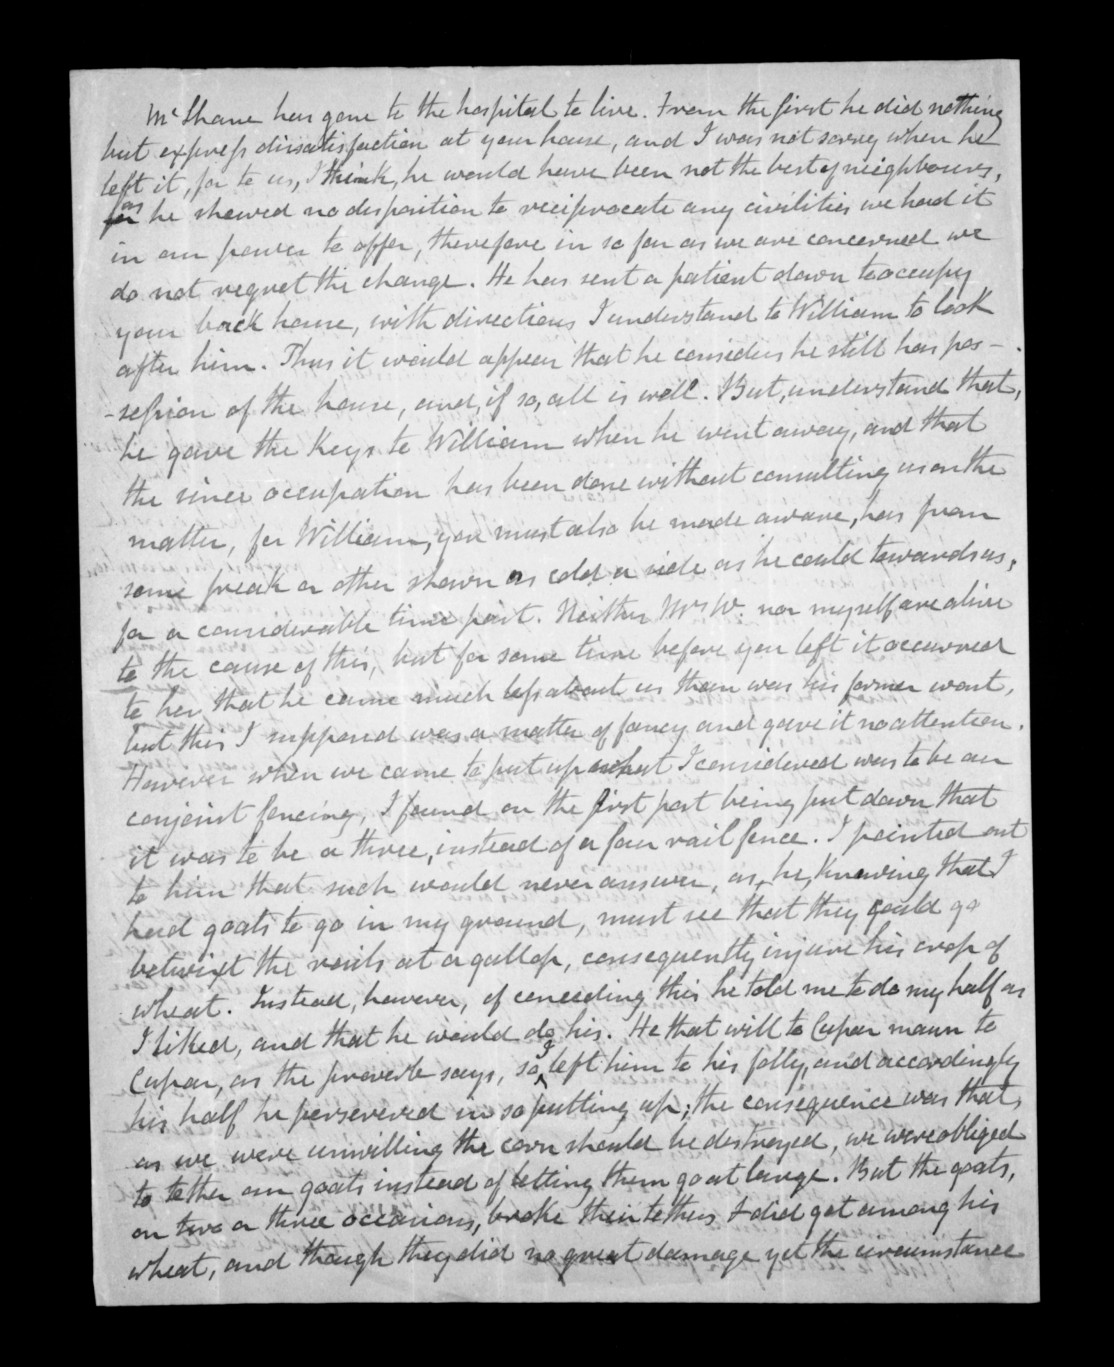 McShane has gone to the hospital to live. From the first he did nothing
but express dissatisfaction at your house, and I was not sorry when he
left it, for to us, I think, he would have been not the best of neighbours,
as he shewed no disposition to reciprocate any civilities we had it
in our power to offer, therefore in so far as we are concerned we
do not regret the change. He has sent a patient down to occupy
your back house, with directions I understand to William to look
after him. Thus it would appear that he considers he still has pos-
-session of the house, and, if so, all is well. But, understand that,
he gave the keys to William when he went away, and that
the since occupation has been done without consulting us on the
matter, for William, you must also be made aware, has from
some freak or other shown as cold a side as he could towards us,
for a considerable time past. Neither Mrs W. nor myself are alive
to the cause of this, but for some time before you left it occurred
to her that he came much less about us than was his former wont,
but this I supposed was a matter of fancy and gave it no attention.
However when we came to put up what I considered was to be our
conjoint fencing, I found on the first post being put down that
it was to be a three, instead of a four rail fence. I pointed out
to him that such would never answer, as, he, knowing that I
had goats to go in my ground, must see that they could go
betwixt the rails at a gallop, consequently injure his crop of
wheat. Instead, however, of conceeding this he told me to do my half as
I liked, and that he would do his. He that will to Cupar maun to
Cupar, as the proverb says, so I left him to his folly, and accordingly
his half he persevered in so putting up; the consequence was that,
as we were unwilling the corn should be destroyed, we were obliged
to tether our goats instead of letting them go at large. But the goats,
on two or three occasions, broke their tethers & did get among his
wheat, and though they did no great damage yet the circumstance